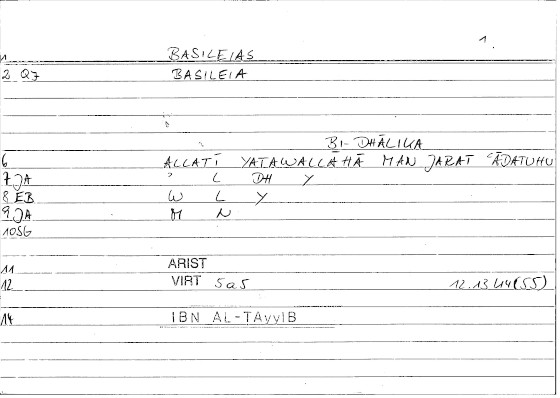 1.
1 BASILEIAS
2 Q7 BASILEIA
BI-DHĀLIKA
6 ALLATĪ YATAWALLĀHĀ MAN JARAT ʿĀDATUHU
7 JA ʾ L DH Y
8 EB W L Y
9 JA M N
10SG
11 ARIST
12 VIRT 5a5 12.13
14 IBN AL-TAyyIB